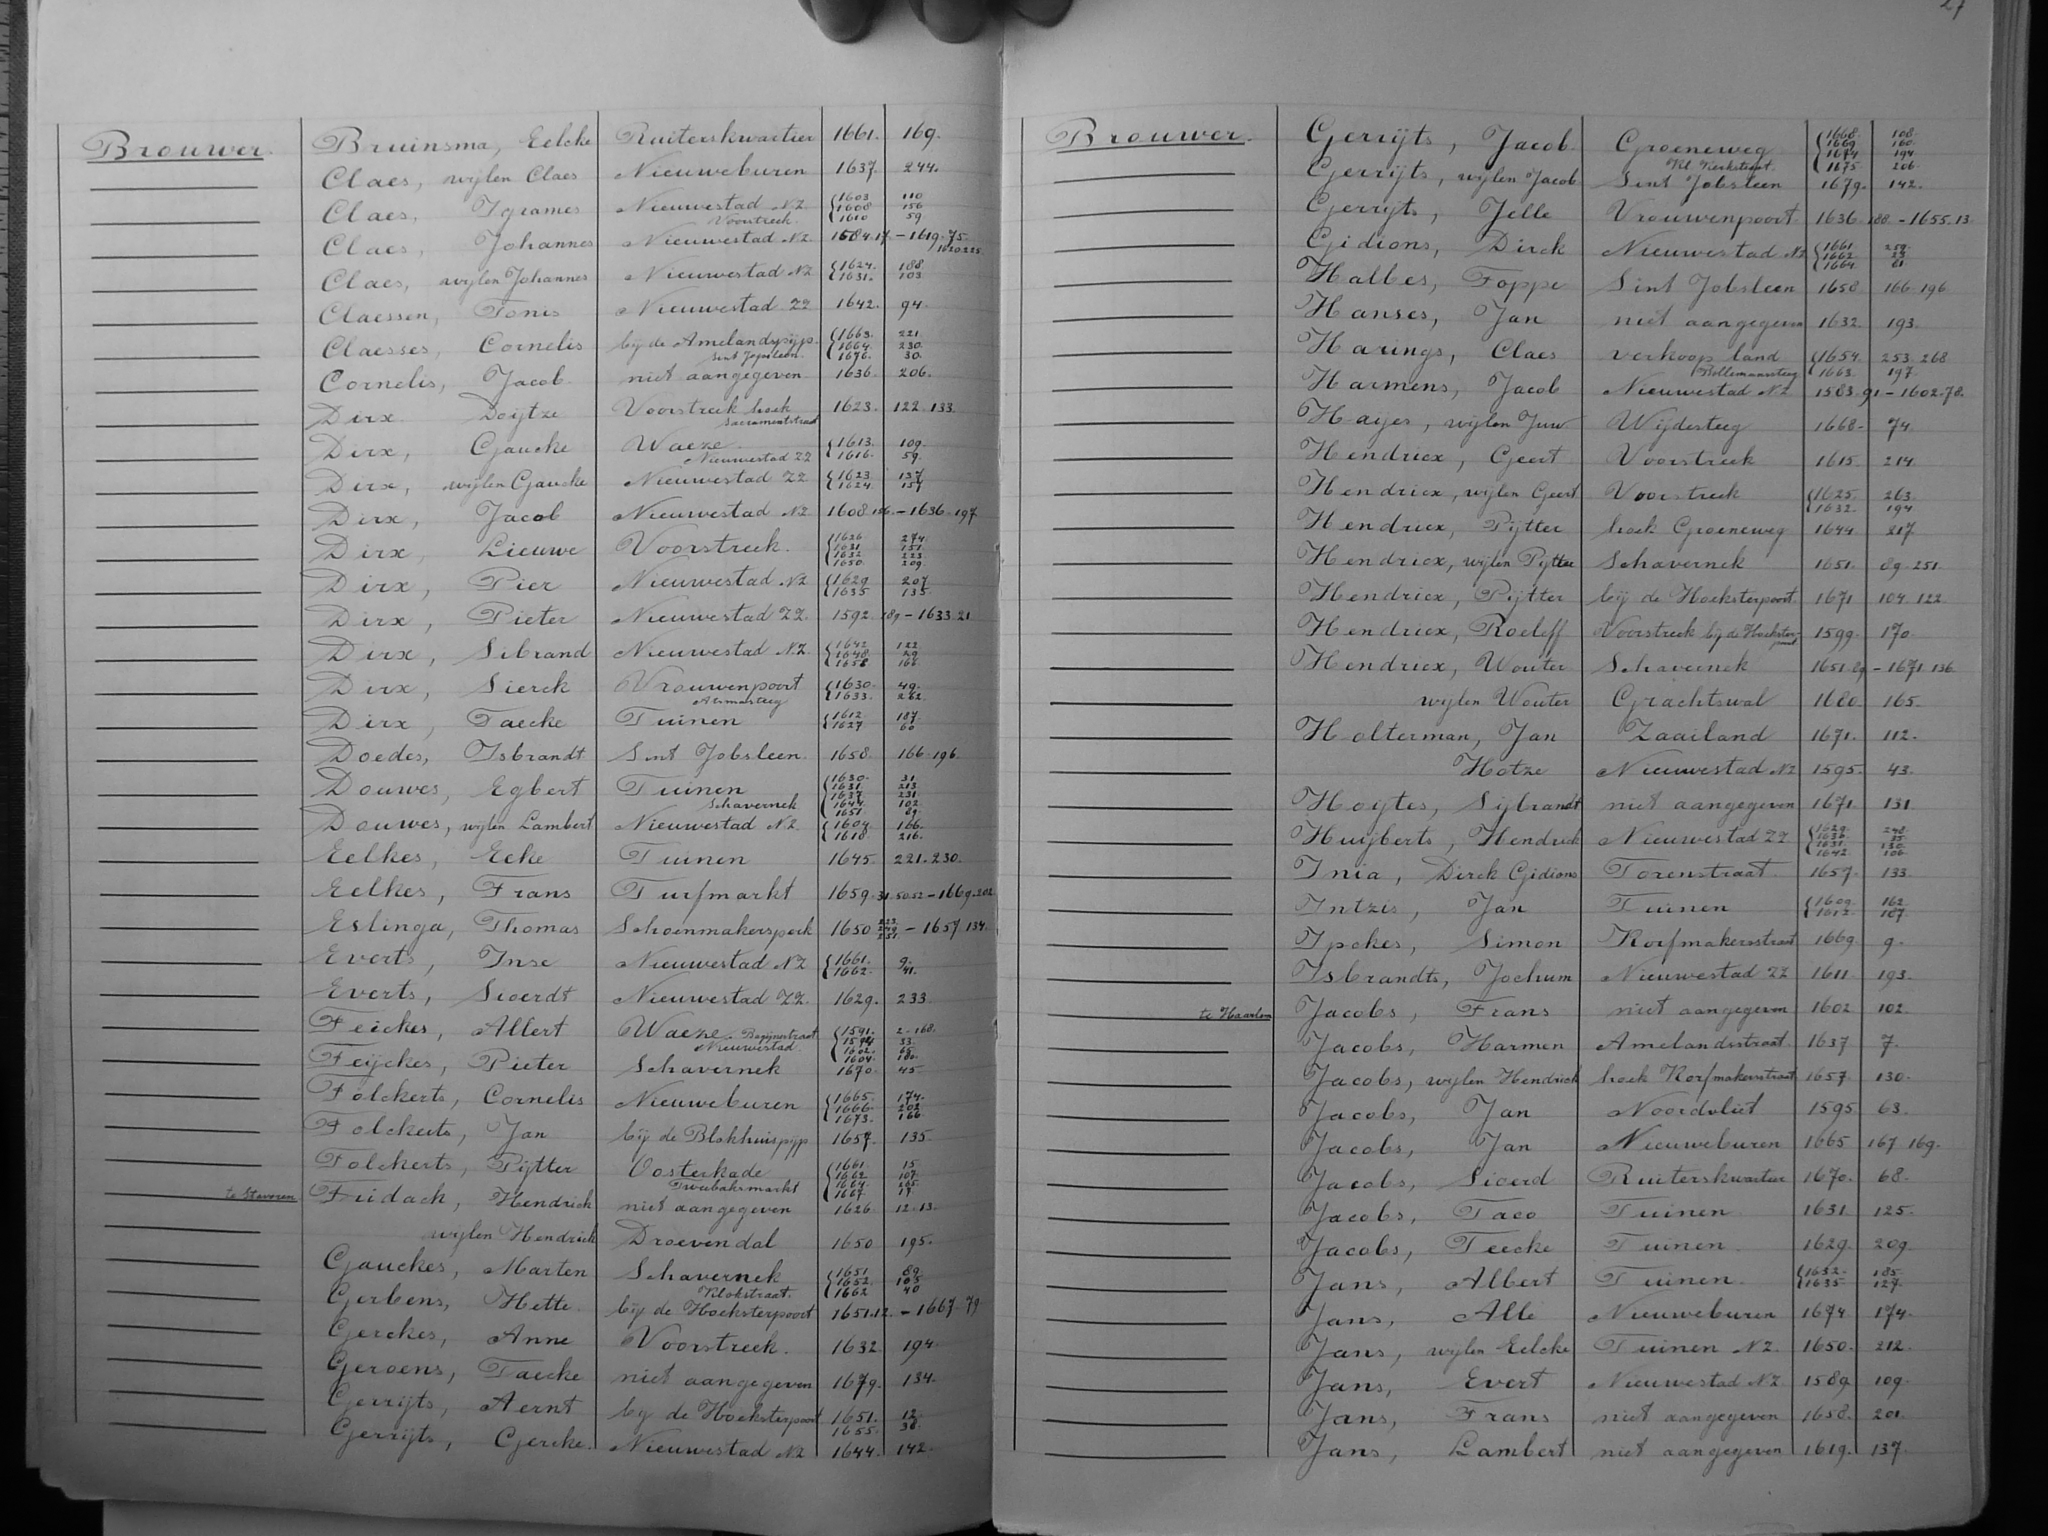 27
Brouwer. Bruinsma, Eelcke Ruiterskwartier 1661. 169.
Claes, wijlen Claes Nieuweburen 1637. 244.
Claes, Igrames Nieuwestad NZ Voorstreek. 1603 1608 1610 110 156 59.
Claes, Johannes Nieuwestad NZ. 1584.17. - 1619.75. 1620.225.
Claes, wijlen Johannes Nieuwestad NZ 1624. 1631. 188. 103.
Claessen, Tonis Nieuwestad ZZ 1642. 94.
Claesses, Cornelis bij de Amelandspijp. Sint Jopsleen. 1663. 1664. 1676. 221. 230. 30.
Cornelis, Jacob niet aangegeven 1636. 206.
Dirx Doijtze Voorstreek hoek Sacramentstraat 1623. 122.133.
Dirx, Gaucke Waeze. Nieuwestad ZZ 1613. 1616. 109. 59.
Dirx, wijlen Gaucke Nieuwestad ZZ 1623. 1624. 137. 157.
Dirx, Jacob Nieuwestad NZ 1608.156. - 1636.197
Dirx, Lieuwe Voorstreek. 1626 1631. 1632 1650. 274. 151. 223. 209.
Dirx, Pier Nieuwestad NZ 1629 1635 207. 135.
Dirx, Pieter Nieuwestad ZZ. 1592.289 - 1633.21
Dirx, Sibrand Nieuwestad NZ. 1642. 1648. 1658. 122. 29. 162.
Dirx, Sierck Vrouwenpoort Aumasteeg 1630. 1633. 49. 262.
Dirx, Taecke Tuinen 1612. 1627. 187. 60.
Doedes, Isbrandt Sint Jobsleen. 1658. 166.196.
Douwes, Egbert Tuinen Schavernek 1630. 1631. 1637. 1644. 1651. 31. 213. 231. 102. 89.
Douwes, wijlen Lambert Nieuwestad NZ. 1604. 1610. 166. 216.
Eelkes, Eeke Tuinen 1645. 221.230.
Eelkes, Frans Turfmarkt 1659.31.50.52 - 1669.202
Eslinga, Thomas Schoenmakersperk 1650 223. 249. 251. - 1657.134.
Everts, Inse Nieuwestad NZ 1661. 1662. 9. 41.
Everts, Sioerdt Nieuwestad ZZ. 1629. 233.
Feickes, Allert Waeze. Bagijnestraat Nieuwestad. 1591. 1594 1602. 1604. 2.168. 33. 65. 180.
Feijckes, Pieter Schavernek 1670. 45.
Folckerts, Cornelis Nieuweburen 1665. 1666. 1673. 174. 202. 166.
Folckerts, Jan bij de Blokhuispijp 1657. 135.
Folckerts, Pijtter Oosterkade Tweebaksmarkt 1661. 1662. 1664. 1667. 15 107. 265. 17.
te Stavoren Fridach, Hendrick niet aangegeven 1626. 12.13.
wijlen Hendrick Droevendal 1650 195.
Gauckes, Marten Schavernek Klokstraat. 1651 1652. 1662 89. 105. 40
Gerbens, Hette. bij de Hoeksterpoort 1651.12. - 1667.79
Gerckes, Anne Voorstreek. 1632. 194.
Geroens, Taecke niet aangegeven 1679. 134.
Gerrijts, Aernt bij de Hoeksterpoort 1651. 1655. 12. 38.
Gerrijts, Gercke. Nieuwestad NZ 1644. 142.
Brouwer. Gerrijts, Jacob. Groeneweg Kl. Kerkstraat. 1668. 1669. 1674 1675 108. 160. 194. 206
Gerrijts, wijlen Jacob Sint Jobsleen 1679. 142.
Gerrijts, Jelle Vrouwenpoort. 1636.188 - 1655.13.
Gidions, Dirck Nieuwestad NZ 1661. 1662. 1664. 259. 23. 61
Halbes, Foppe Sint Jobsleen 1658 166.196.
Hanses, Jan niet aangegeven 1632. 193.
Harings, Claes verkoop land Bollemanssteeg 1654. 1663. 253.268 197.
Harmens, Jacob Nieuwestad NZ 1583.91 - 1602.78.
Hayes, wijlen Juw Wijdesteeg 1668. 74.
Hendricx, Geert Voorstreek 1615. 214.
Hendricx, wijlen Geert Voorstreek 1625. 1632. 263. 194
Hendricx, Pijtter hoek Groeneweg 1644 217.
Hendricx, wijlen Pijtter Schavernek 1651. 89.251.
Hendricx, Pijtter bij de Hoeksterpoort. 1671 104.122
Hendricx, Roeleff Voorstreek bij de Hoekster- poort 1599. 170.
Hendricx, Wouter Schavernek 1651.89 - 1671.136.
wijlen Wouter Grachtswal 1680. 165.
Holterman, Jan Zaailand 1671. 112.
Hotze Nieuwestad NZ 1595. 43.
Hoytes, Sijbrandt niet aangegeven 1671. 131
Huijberts, Hendrick Nieuwestad ZZ 1629. 1630. 1631. 1642. 248. 35. 130. 106.
Inia, Dirck Gidions Torenstraat. 1657. 133.
Intzis, Jan Tuinen 1609. 1612. 162 187.
Ipckes, Simon Korfmakersstraat 1669. 9.
Isbrandts, Jochum Nieuwestad ZZ 1611 193.
te Haarlem Jacobs, Frans niet aangegeven 1602 102.
Jacobs, Harmen Amelandsstraat. 1637 7.
Jacobs, wijlen Hendrick hoek Korfmakersstraat 1657. 130.
Jacobs, Jan Noordvliet 1595 63.
Jacobs, Jan Nieuweburen 1665 167.169.
Jacobs, Sioerd Ruiterskwartier 1670. 68.
Jacobs, Taco Tuinen 1631 125.
Jacobs, Teecke Tuinen 1629. 209.
Jans, Albert Tuinen. 1632. 1635 185. 127.
Jans, Alle Nieuweburen 1674. 174.
Jans, wijlen Eelcke Tuinen NZ. 1650. 212.
Jans, Evert Nieuwestad NZ 1589 109.
Jans, Frans niet aangegeven 1658. 201.
Jans, Lambert niet aangegeven 1619. 137.